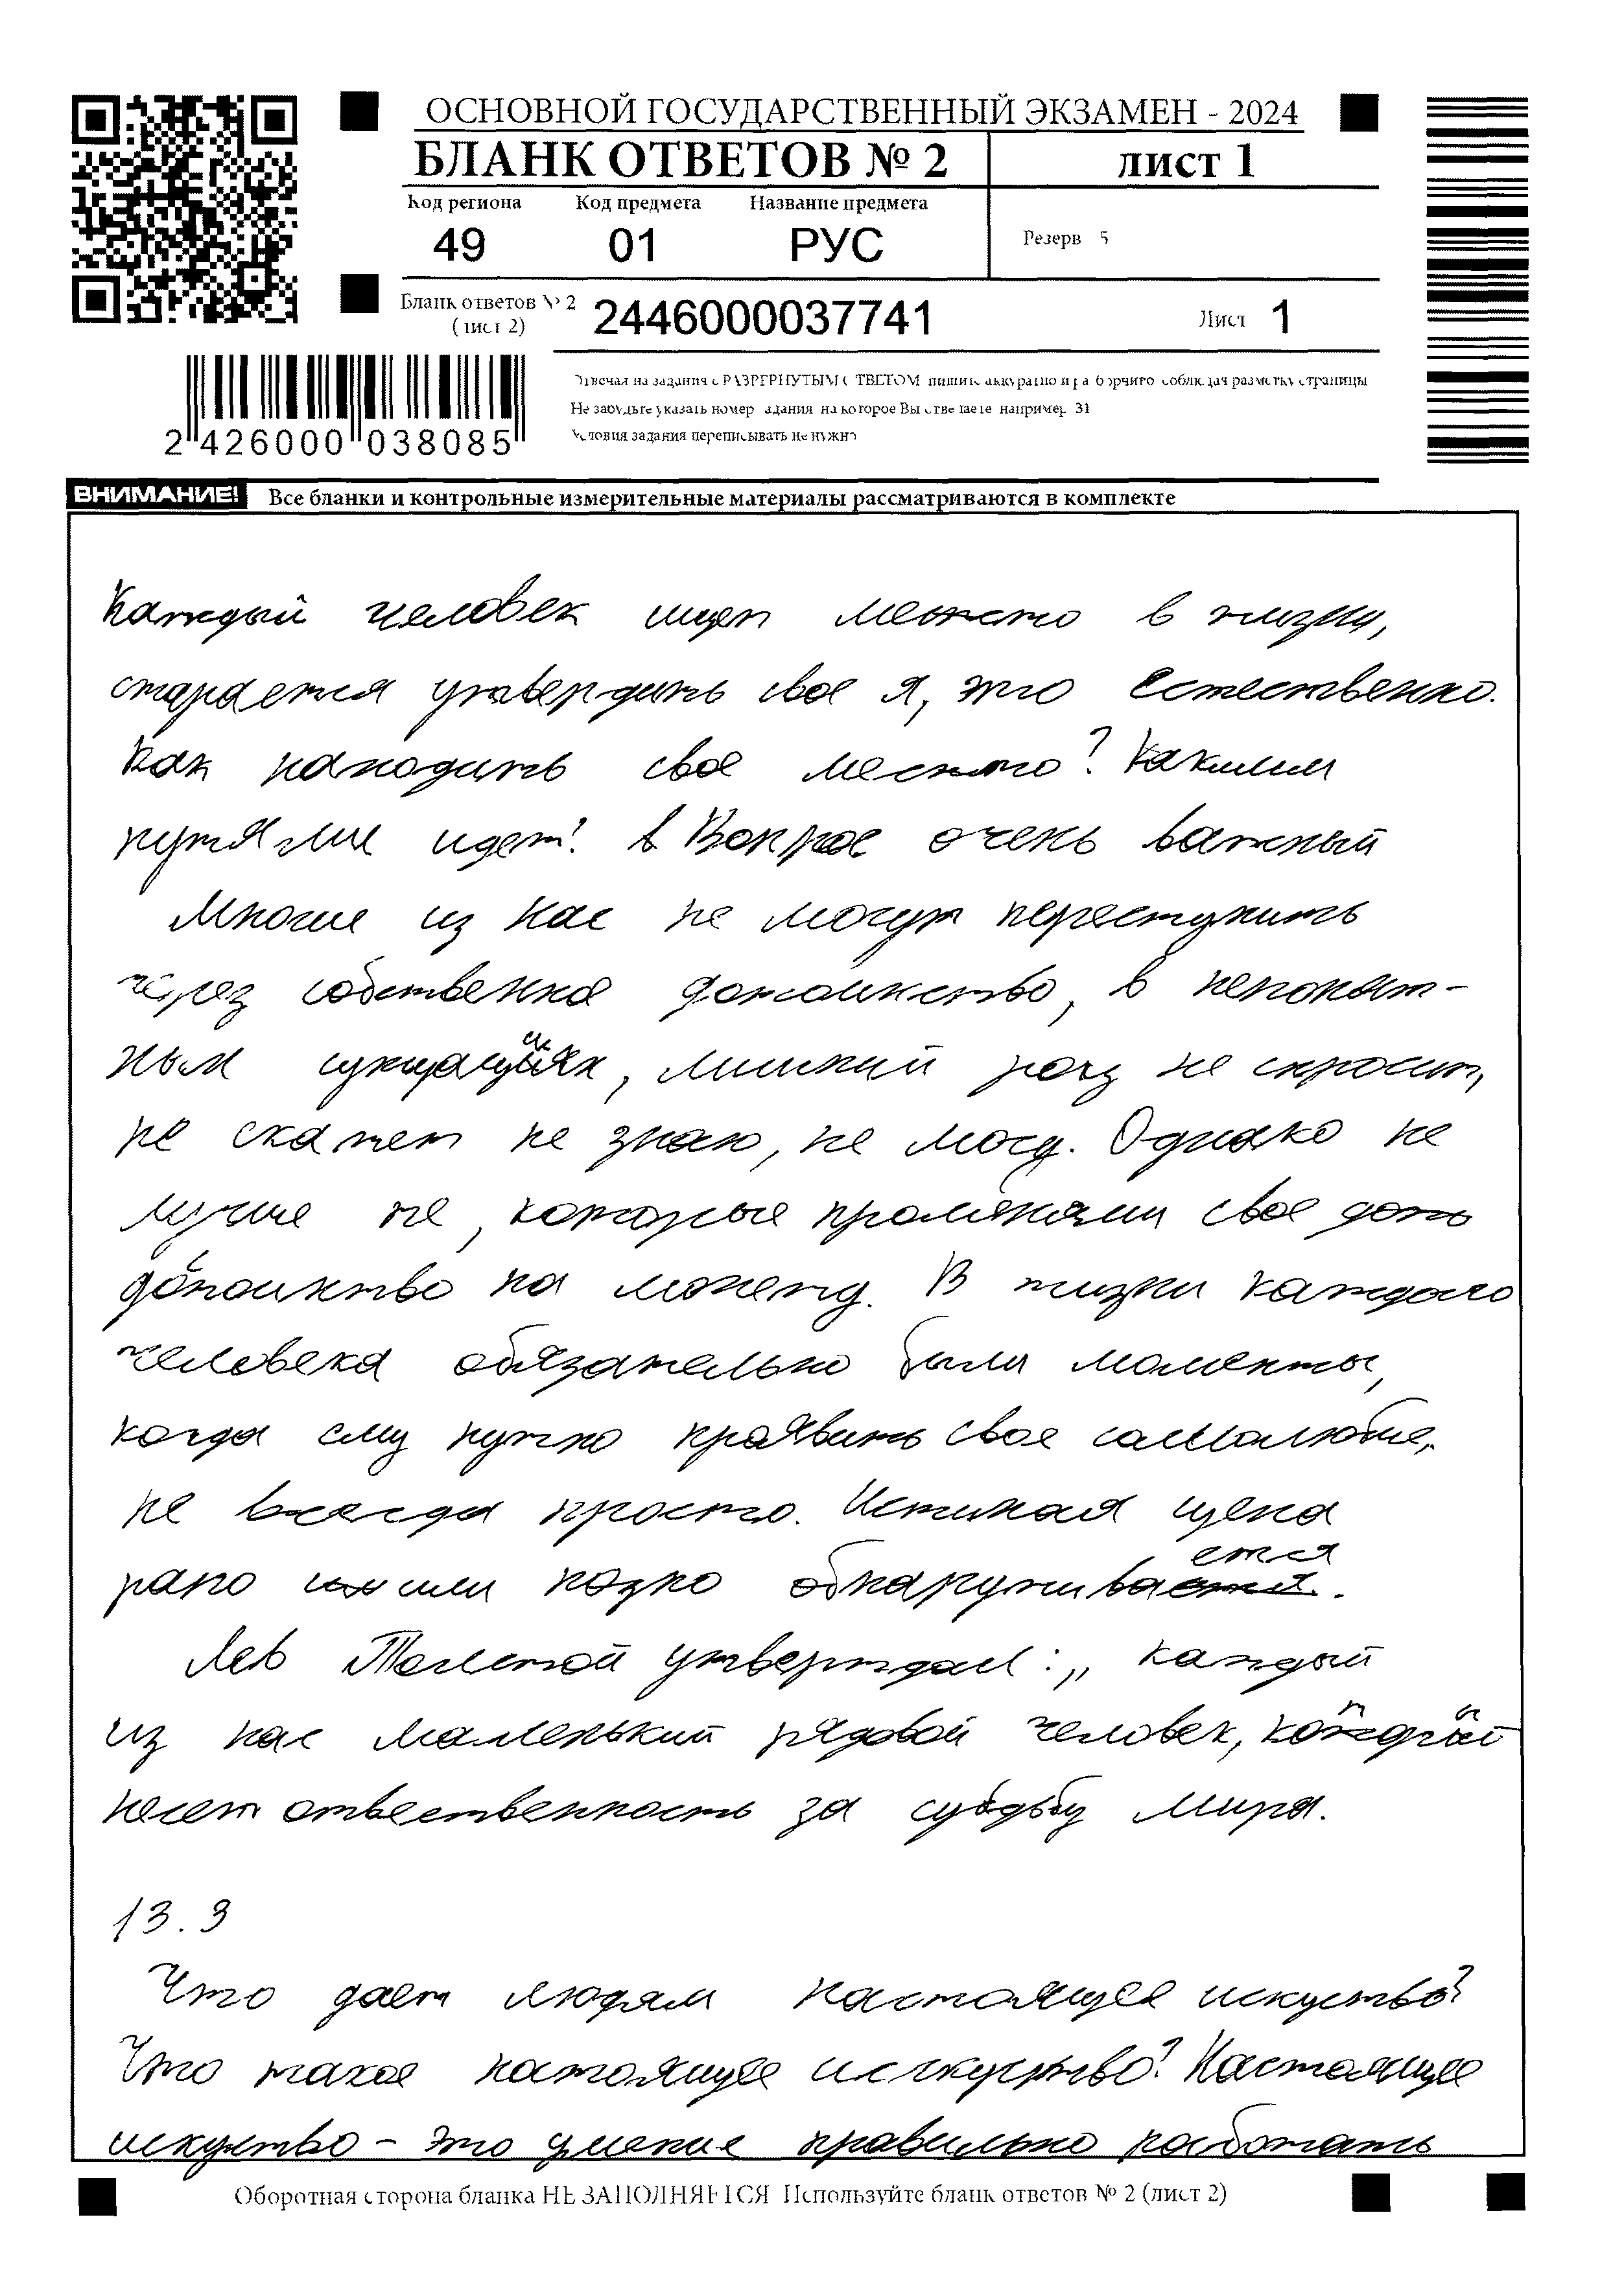 ОСНОВНОЙ ГОСУДАРСТВЕННЫЙ ЭКЗАМЕН - 2024
БЛАНК ОТВЕТОВ № 2
лист 1
Код региона Код предмета Название предмета
49 01 РУС
Резерв 5
Бланк ответов № 2 (лист 2) 2446000037741
Лист 1
Отвечая на задания с РАЗВЕРНУТЫМ ОТВЕТОМ пишите аккуратно и разборчиво соблюдая разметку страницы
Не забудьте указать номер задания на которое Вы отвечаете например 31
Условия задания переписывать не нужно
2 426000 038085
ВНИМАНИЕ! Все бланки и контрольные измерительные материалы рассматриваются в комплекте
Каждый человек ищет место в жизни,
старается утвердить свое я, это естественно.
Как находить свое место? Какими
путями идет? Вопрос очень важный
Многие из нас не могут переступить
через собственное достоинство, в непонят-
ным ситуациях, лишний раз не спросит,
не скажет не знаю, не могу. Однако не
лучше те, которые променяли свое
достоинство на монету. В жизни каждого
человека обязательно были моменты,
когда ему нужно проявить свое самолюбие,
не всегда просто. Истиная цена
рано или поздно обнаруживается.
Лев Толстой утверждал: „ каждый
из нас маленький рядовой человек, каждый
несет отвественность за судьбу мира.
13.3
Что дает людям настоящее искуство?
Что такое настоящее исскуство? Настоящее
искуство - это умение правильно работать
Оборотная сторона бланка НЕ ЗАПОЛНЯЕТСЯ Используйте бланк ответов № 2 (лист 2)